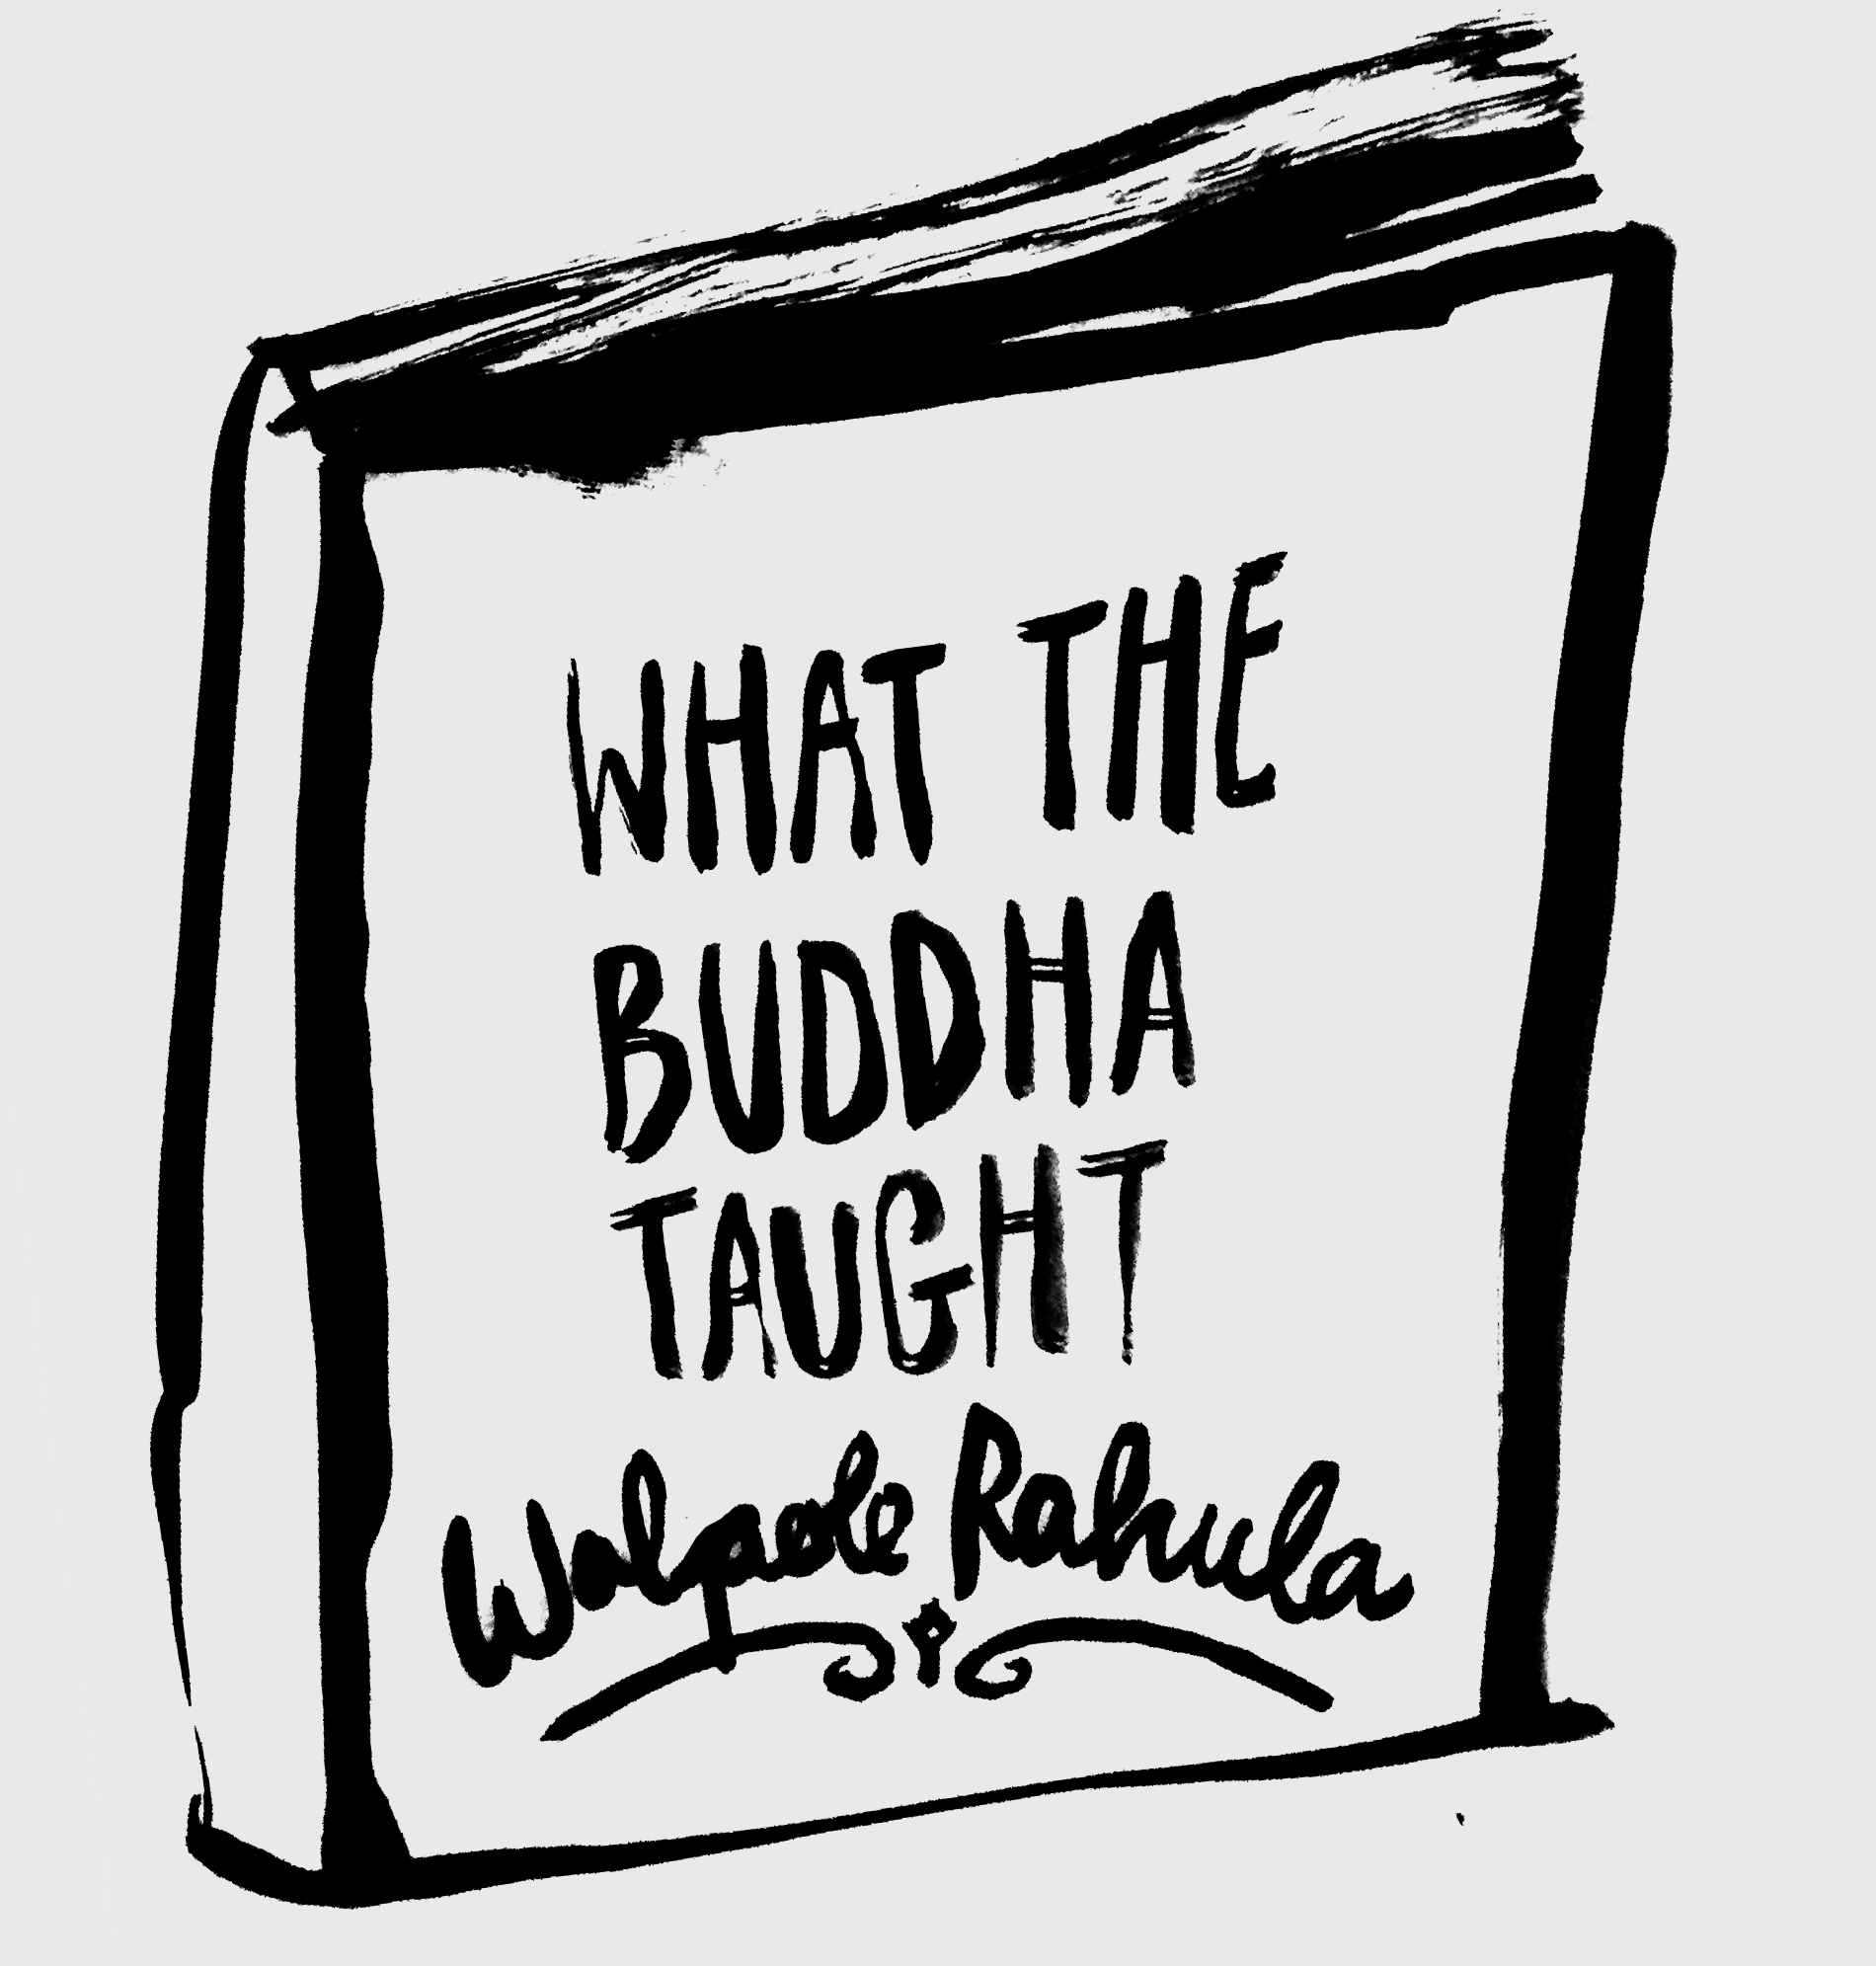 WHAT THE
BUDDHA
TAUGHT
Walpole Rahula